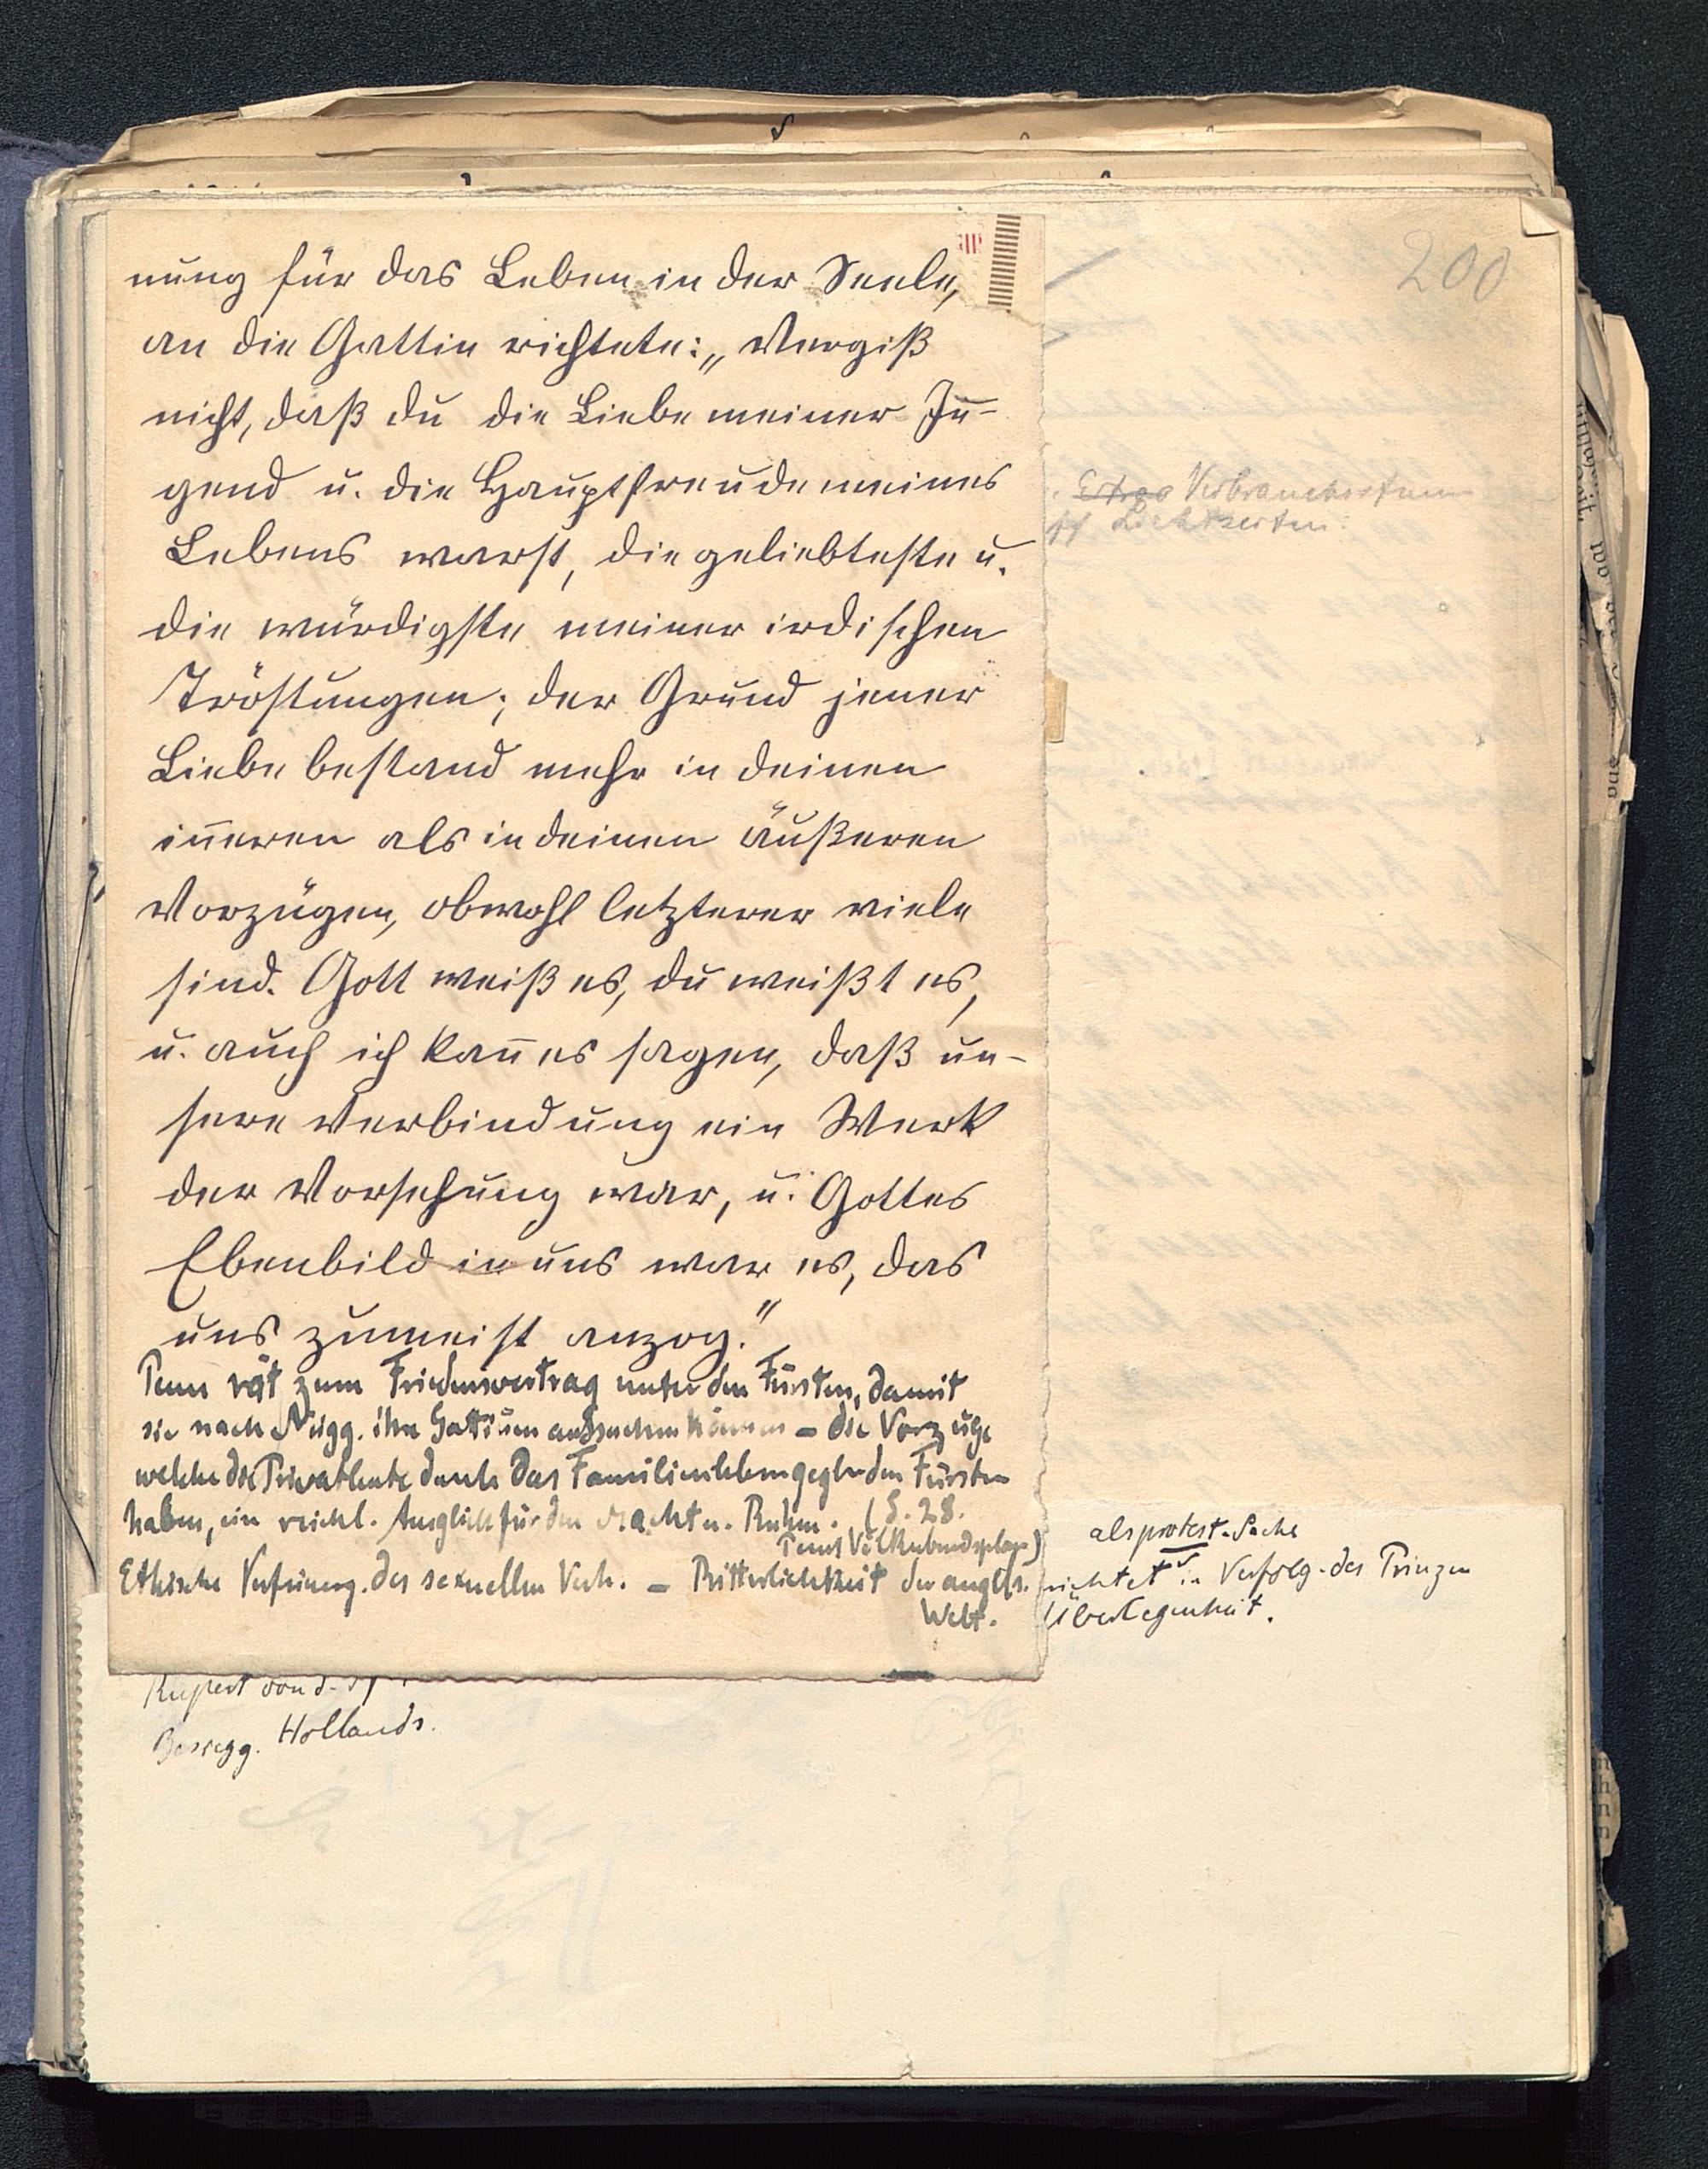 200
nung für das Leben in der Seele,
an die Gattin richtete: „Vergiß
nicht, daß du die Liebe meiner Ju-
gend u. die Hauptfreude meines
Lebens warst, die geliebteste u.
die würdigste meiner irdischen
Tröstungen; der Grund jener
Liebe bestand mehr in deinen
in̄eren als in deinen äußeren
Vorzügen, obwohl letzterer viele
sind. Gott weiß es, du weißt es,
u. auch ich kan̄ es sagen, daß un-
sere Verbindung ein Werk
der Vorsehung war, u. Gottes
Ebenbild in uns war es, das
uns zumeist anzog."
Penn rät zum Friedensvertrag unter den Fürsten, damit
sie nach Neigg. ihre Gattinen aussuchen können – die Vorzüge
welche die Privatleute durch das Familienleben gegenüber den Fürsten
haben, ein reichl. Ausgleich für den Macht u. Ruhm. (S. 28.
Penns Völkerbundsplan)
Ethische Verfeinerg. des sexuellen Verh. – Ritterlichkeit der angels.
Welt.
Verbrauchertum
Lichtseiten.
als protest. Sache
richtet in Verfolg. des Prinzen
Überlegenheit.
Rupert von d.
Hollands.